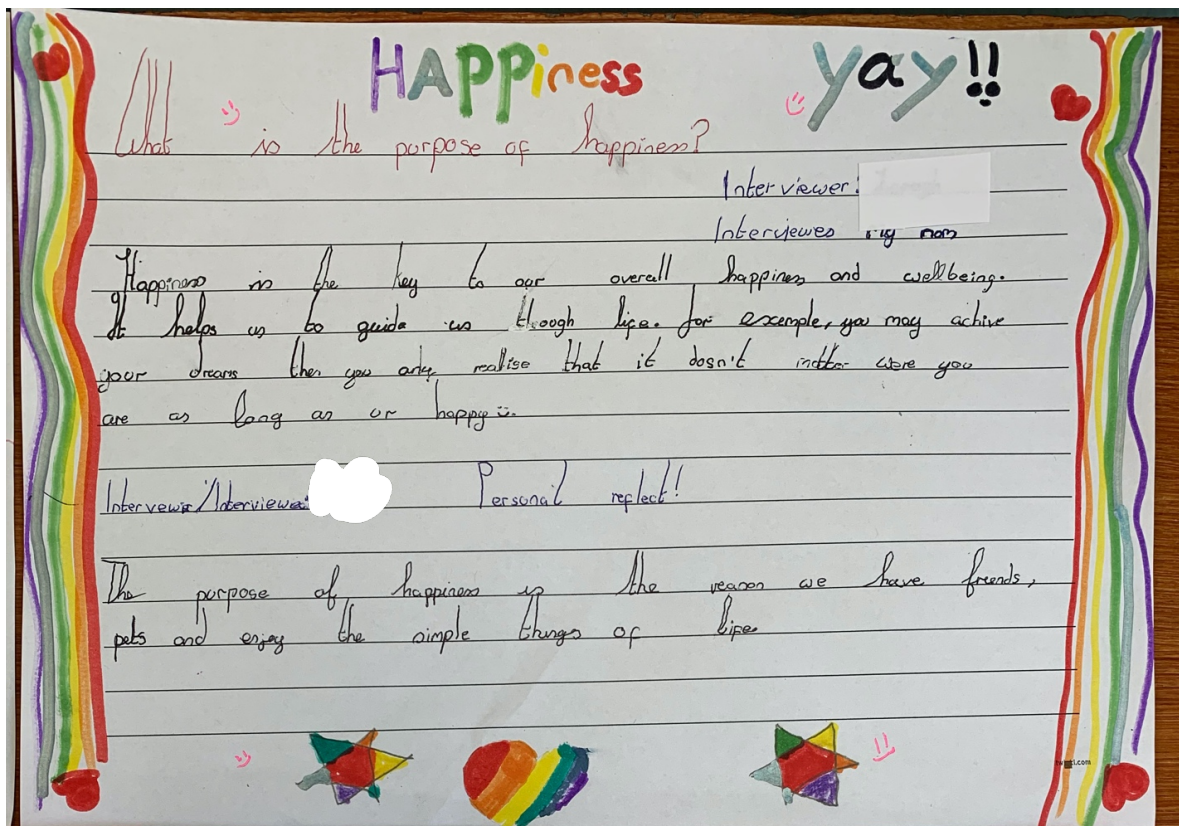 HAPPiness yay!!
What is the purpose of happiness?
Interviewer:
Interviewes my mom
Happiness is the key to our overall happiness and wellbeing.
It helps us to guide us though life. for exemple, you may achive
your dreams then you only realise that it dosn't matter were you
are as long as ur happy
Interviewer/Interviewee: Personal reflect!
The purpose of happiness is the reason we have friends,
pets and enjoy the simple things of life